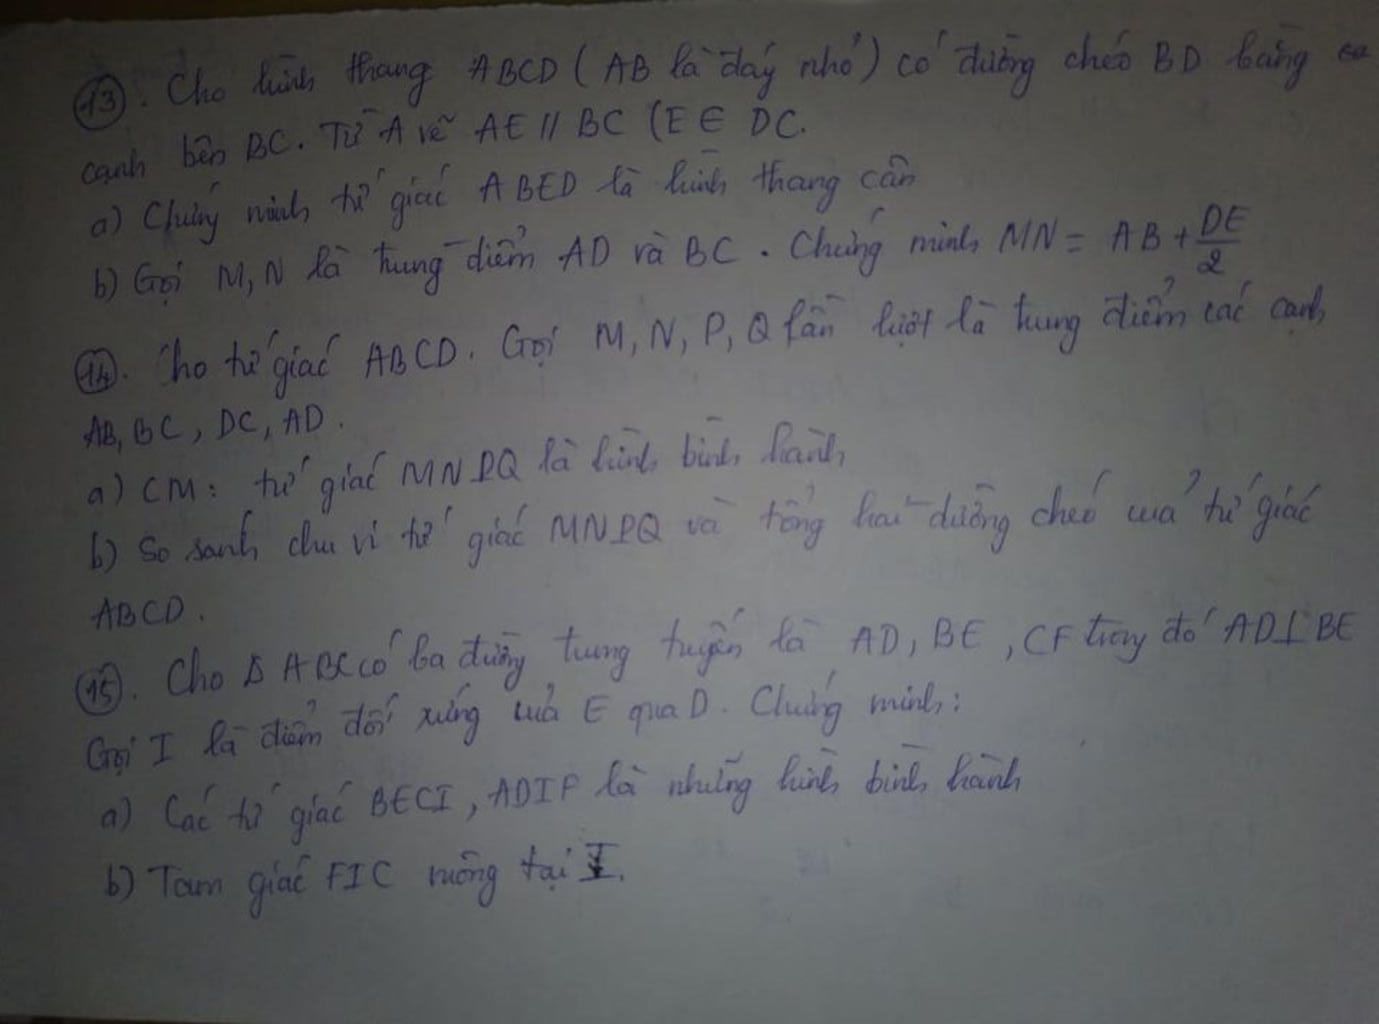 13. Cho hình thang ABCD ( AB là đáy nhỏ ) có đường chéo BD bằng
cạnh bên BC. Từ A vẽ AE // BC (E ∈ DC.
a) Chứng minh tứ giác ABED là hình thang cân
b) Gọi M, N là trung điểm AD và BC. Chứng minh MN = AB + DE/2
14. Cho tứ giác ABCD. Gọi M, N, P, Q lần lượt là trung điểm các cạnh
AB, BC, DC, AD.
a) CM: tứ giác MNPQ là hình bình hành
b) So sánh chu vi tứ giác MNPQ và tổng hai đường chéo của tứ giác
ABCD.
15. Cho Δ ABC có ba đường trung tuyến là AD, BE, CF trong đó AD⊥BE
Gọi I là điểm đối xứng của E qua D. Chứng minh:
a) Các tứ giác BECI, ADIF là những hình bình hành
b) Tam giác FIC vuông tại I.